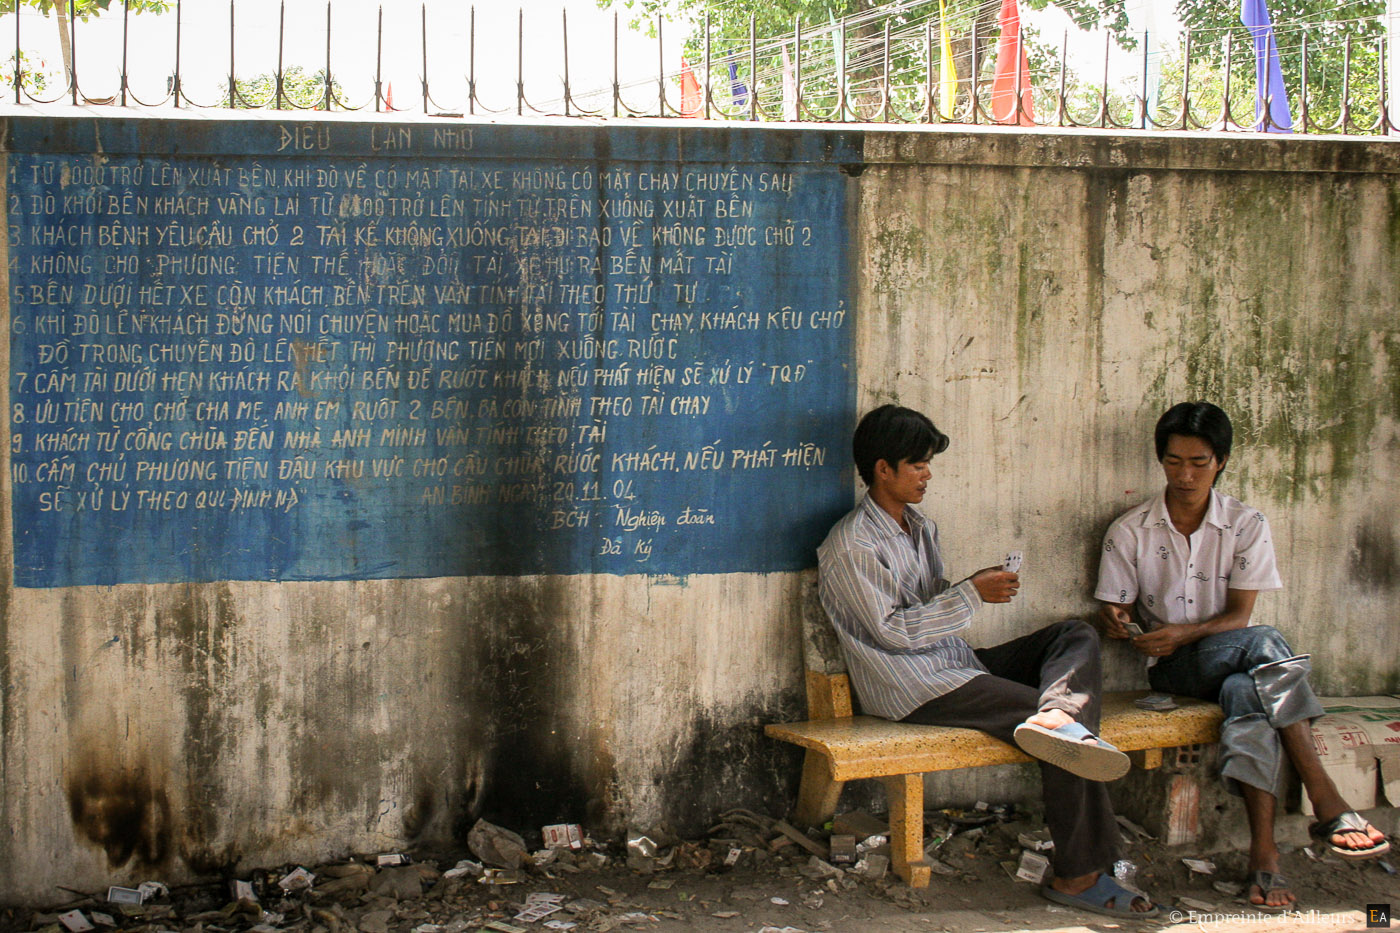 ĐIỀU CẦN NHỚ
1. TỪ 2000 TRỞ LÊN XUẤT BẾN, KHI ĐÒ VỀ CÓ MẶT TẠI XE, KHÔNG CÓ MẶT CHẠY CHUYẾN SAU
2. ĐÒ KHỎI BẾN KHÁCH VÃNG LAI TỪ TRỞ LÊN TÍNH TỪ TRÊN XUỐNG XUẤT BẾN
3. KHÁCH BỆNH YÊU CẦU CHỞ 2 TÀI KẾ KHÔNG XUỐNG, TÀI ĐI BAO VỀ KHÔNG ĐƯỢC CHỞ 2
4. KHÔNG CHO PHƯƠNG TIỆN THẾ HOẶC ĐÔN TÀI, XE HƯ RA BẾN MẤT TÀI
5. BẾN DƯỚI HẾT XE CÒN KHÁCH, BẾN TRÊN VẪN TÍNH TÀI THEO THỨ TỰ
6. KHI ĐÒ LÊN KHÁCH ĐỨNG NÓI CHUYỆN HOẶC MUA ĐỒ XONG TỚI TÀI CHẠY, KHÁCH KÊU CHỞ
ĐỒ TRONG CHUYẾN ĐÒ LÊN HẾT THÌ PHƯƠNG TIỆN MỚI XUỐNG RƯỚC
7. CẤM TÀI DƯỚI HẸN KHÁCH RA KHỎI BẾN ĐỂ RƯỚC KHÁCH, NẾU PHÁT HIỆN SẼ XỬ LÝ "TQĐ"
8. ƯU TIÊN CHO CHỞ CHA MẸ, ANH EM RUỘT 2 BÊN, BÀ CON TÍNH THEO TÀI CHẠY
9. KHÁCH TỪ CỔNG CHÙA ĐẾN NHÀ ANH MINH VẪN TÍNH THEO TÀI
10. CẤM CHỦ PHƯƠNG TIỆN ĐẬU KHU VỰC CHỢ CẦU CHÙA RƯỚC KHÁCH, NẾU PHÁT HIỆN
SẼ XỬ LÝ THEO QUI ĐỊNH NĐ AN BÌNH NGÀY 20.11.04
BCH Nghiệp đoàn
Đã ký
© Empreinte d'Ailleurs EA